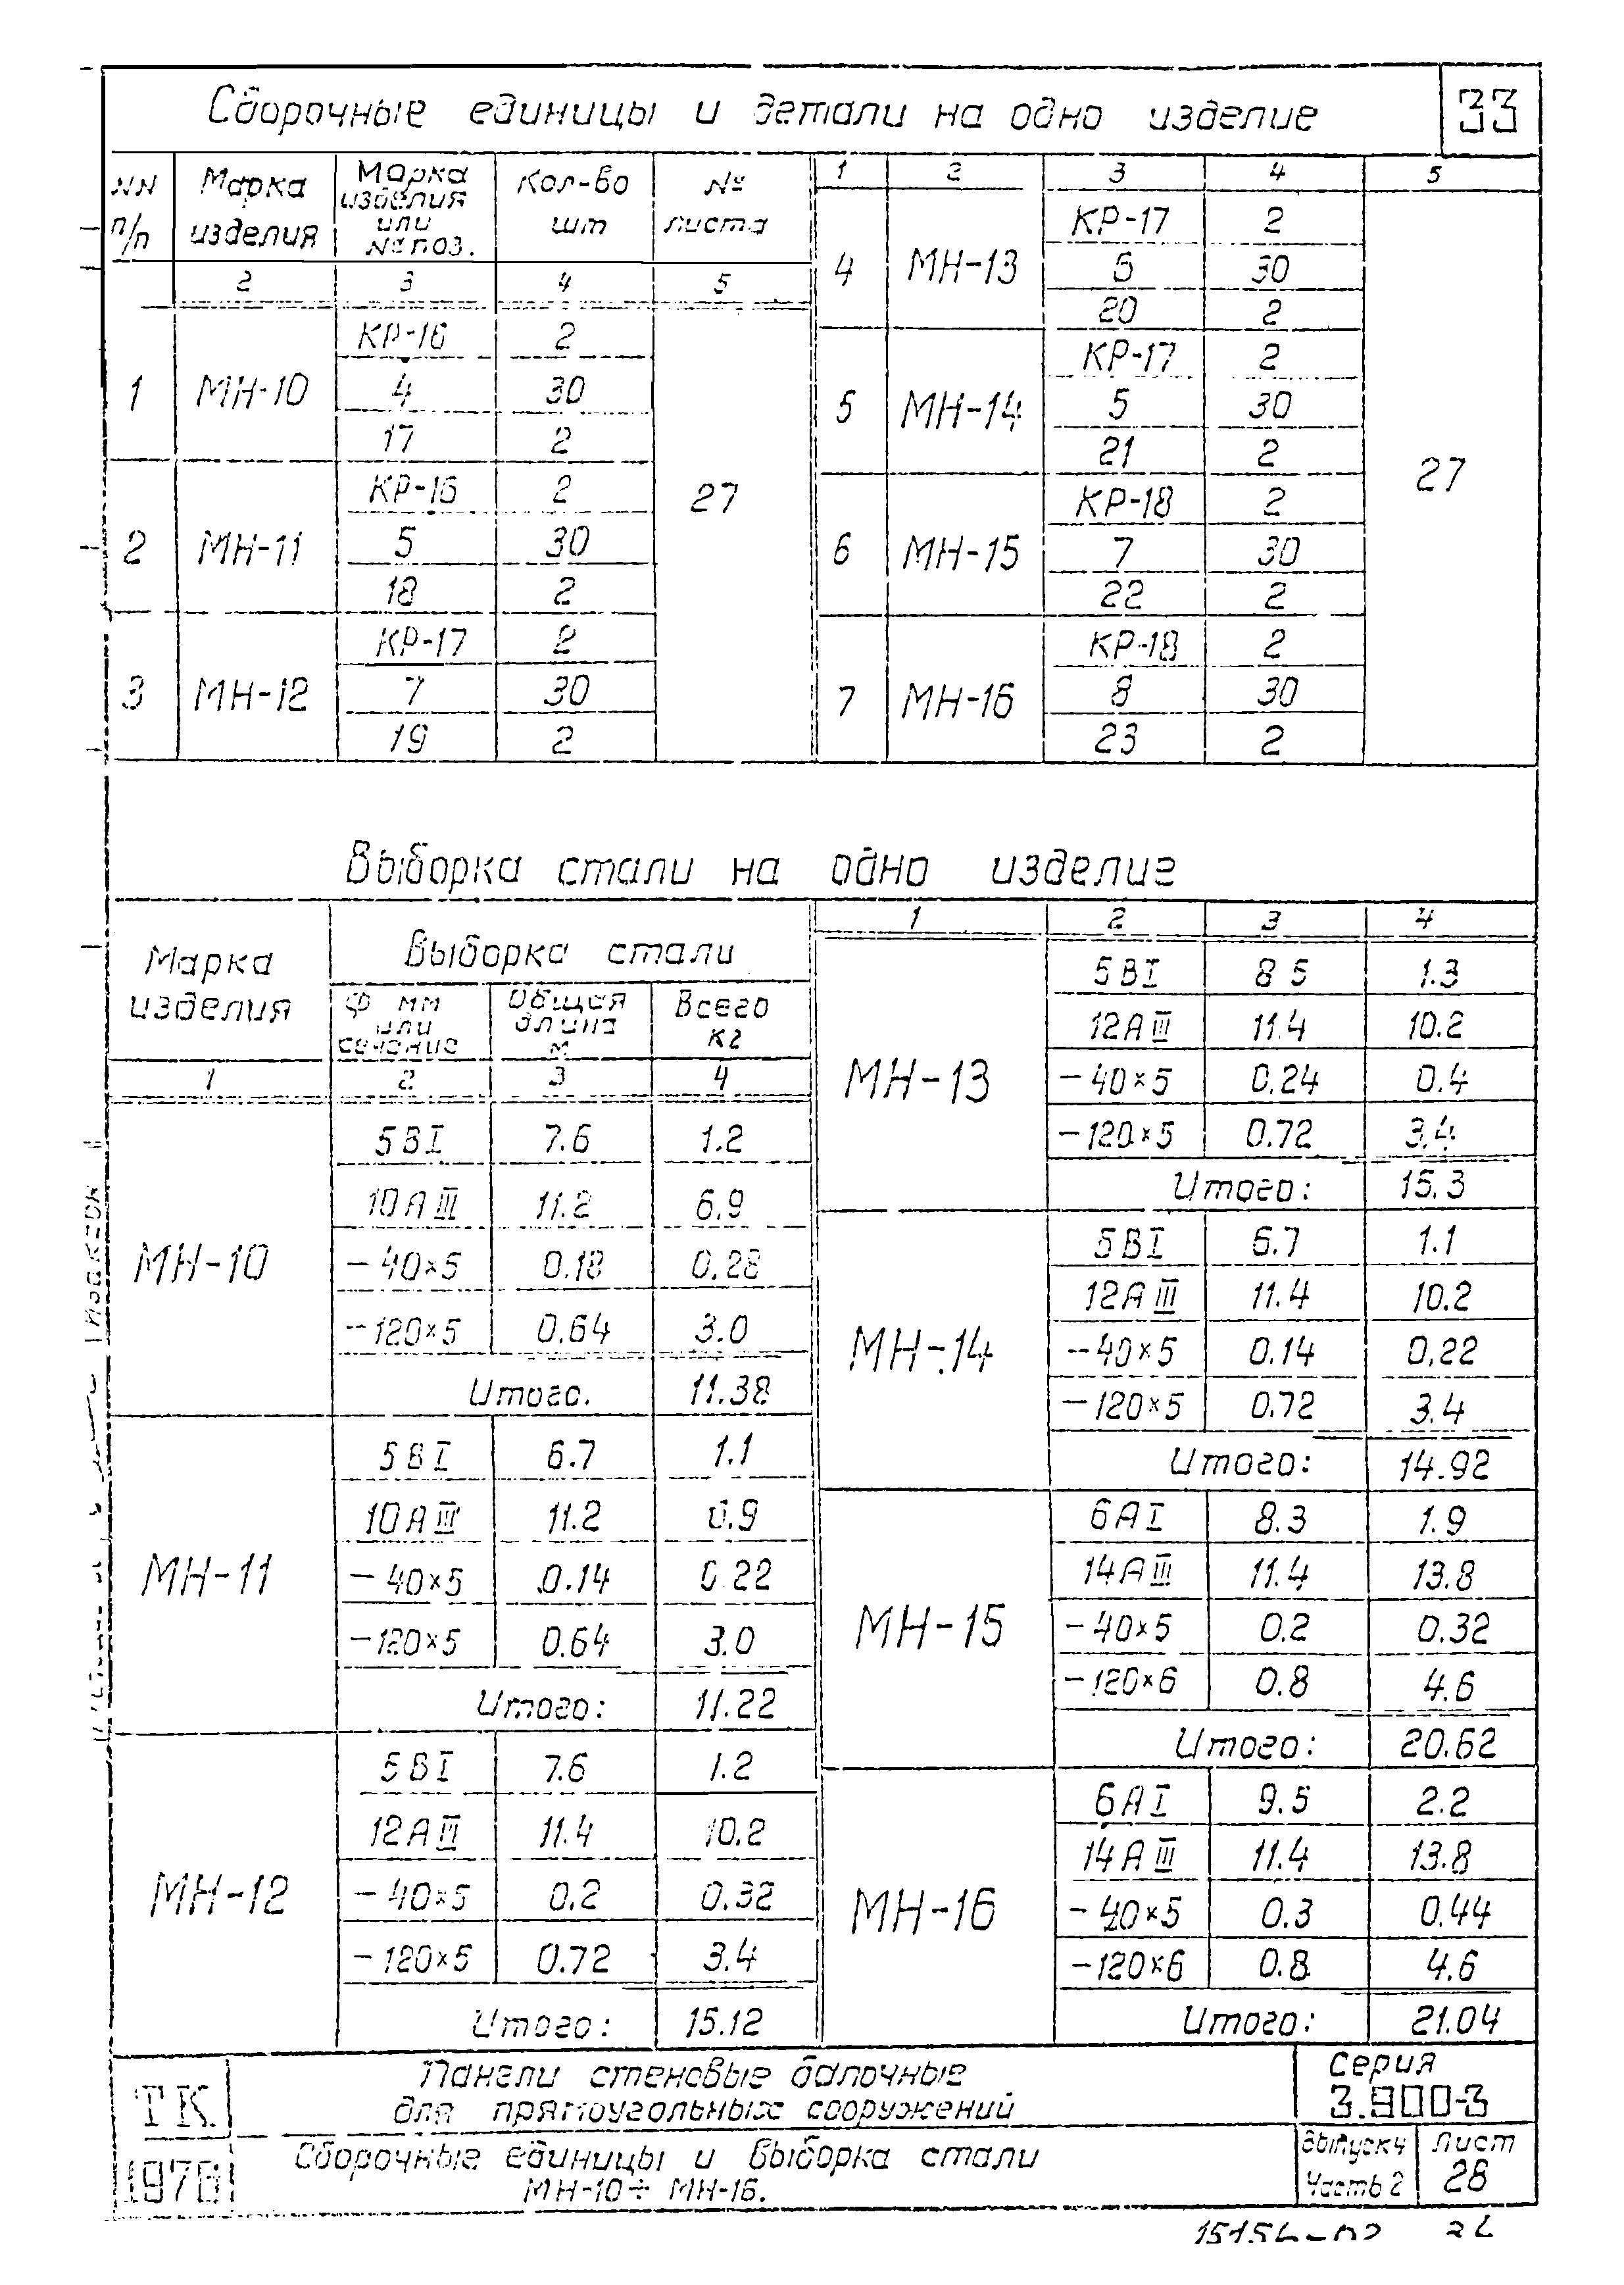 Сборочные единицы и детали на одно изделие
33
NN п/п | Марка изделия | Марка изделия или № поз. | Кол-во шт | № листа
2 | 3 | 4 | 5
1 | МН-10 | КР-16 | 2 | 27
4 | 30
17 | 2
2 | МН-11 | КР-16 | 2
5 | 30
18 | 2
3 | МН-12 | КР-17 | 2
7 | 30
19 | 2
1 | 2 | 3 | 4 | 5
4 | МН-13 | КР-17 | 2 | 27
6 | 30
20 | 2
5 | МН-14 | КР-17 | 2
5 | 30
21 | 2
6 | МН-15 | КР-18 | 2
7 | 30
22 | 2
7 | МН-16 | КР-18 | 2
8 | 30
23 | 2
Выборка стали на одно изделие
Марка изделия | Выборка стали
Ф мм или сечение | Общая длина м | Всего кг
1 | 2 | 3 | 4
МН-10 | 5ВI | 7.6 | 1.2
10АIII | 11.2 | 6.9
-40×5 | 0.18 | 0.28
-120×5 | 0.64 | 3.0
Итого. | 11.38
МН-11 | 5ВI | 6.7 | 1.1
10АIII | 11.2 | 6.9
-40×5 | 0.14 | 0.22
-120×5 | 0.64 | 3.0
Итого: | 11.22
МН-12 | 5ВI | 7.6 | 1.2
12АIII | 11.4 | 10.2
-40×5 | 0.2 | 0.32
-120×5 | 0.72 | 3.4
Итого: | 15.12
1 | 2 | 3 | 4
МН-13 | 5ВI | 8 5 | 1.3
12АIII | 11.4 | 10.2
-40×5 | 0.24 | 0.4
-120×5 | 0.72 | 3.4
Итого: | 15.3
МН-14 | 5ВI | 6.7 | 1.1
12АIII | 11.4 | 10.2
-40×5 | 0.14 | 0.22
-120×5 | 0.72 | 3.4
Итого: | 14.92
МН-15 | 6АI | 8.3 | 1.9
14АIII | 11.4 | 13.8
-40×5 | 0.2 | 0.32
-120×6 | 0.8 | 4.6
Итого: | 20.62
МН-16 | 6АI | 9.5 | 2.2
14АIII | 11.4 | 13.8
-40×5 | 0.3 | 0.44
-120×6 | 0.8 | 4.6
Итого: | 21.04
ТК
1978
Панели стеновые балочные
для прямоугольных сооружений
Сборочные единицы и выборка стали
МН-10÷ МН-16.
Серия
3.900-3
Выпуск 4
Часть 2
Лист
28